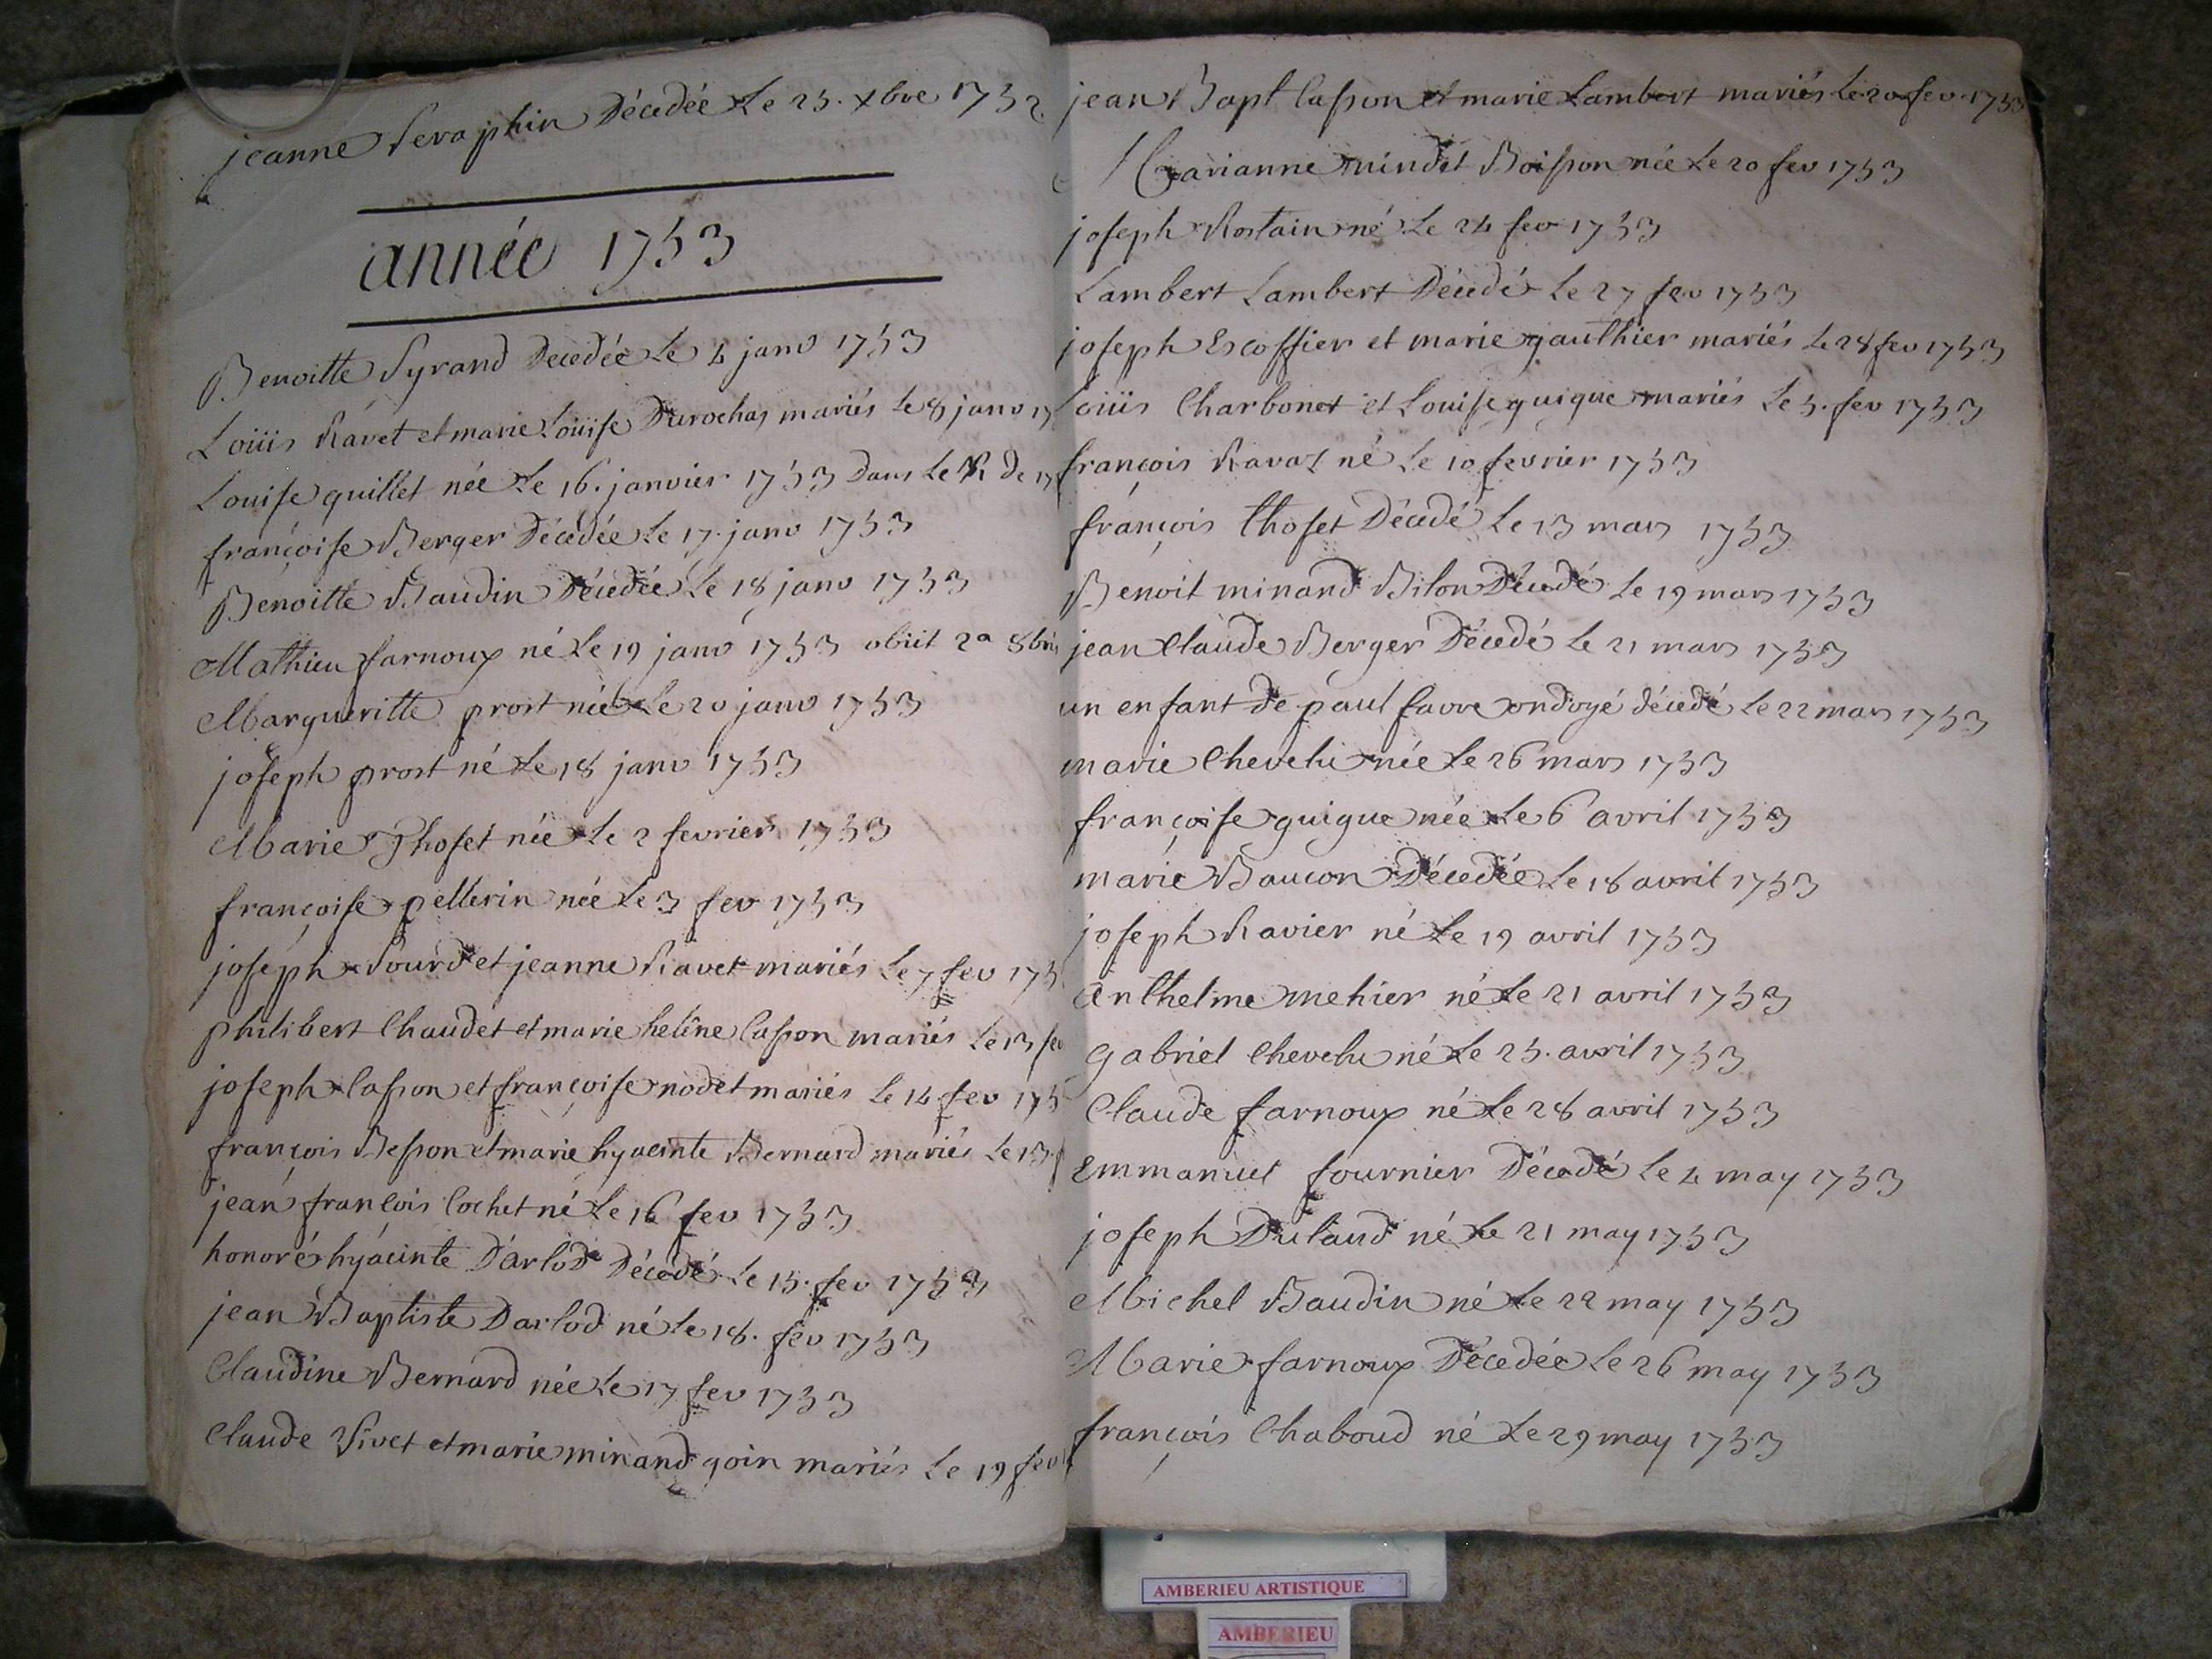 jeanne Seraphin Décedée Le 25. xbre 1752.
année 1753
Benoitte Syrand Decedée Le 4 janv 1753
Loüis Ravet et marie Loüise Durochas mariés Le 8 janv 17
Louise guillet née Le 16. janvier 1753 Dans Le R de 17
françoise Berger Décedée Le 17. janv 1753
Benoitte Baudin Décedée Le 18 janv 1753
Mathieu farnoux né Le 19 janv 1753 obiit 2a 8bris
Margueritte prost née Le 20 janv 1753
joseph prost né Le 18 janv 1753
Marie Thoset née Le 2 fevrier 1753
françoise pellerin née Le 3 fev 1753
joseph Sourd et jeanne Ravet mariés Le 7 fev 175
philibert Chaudet et marie heline Casson mariés Le 13 fev
joseph Casson et françoise nodet mariés Le 14 fev 175
françois Besson et marie hyacinte Bernard mariés Le 13. f
jean françois Cochet né Le 16 fev 1753
honoré hyacinte Darlod Décedé Le 15. fev 1753
jean Baptiste Darlod né Le 18. fev 1753
Claudine Bernard née Le 17 fev 1753
Claude Vivet et marie minand goin mariés Le 19 fev
jean Bapt Casson et marie Lambert mariés Le 20 fev. 1753
Marianne mindet Boisson née Le 20 fev 1753
joseph Rostain né Le 24 fev 1753
Lambert Lambert Décedé Le 27 fev 1753
joseph Escoffier et marie gauthier mariés Le 28 fev 1753
Loüis Charbonet et Louise guigue mariés Le 5. fev 1753
françois Ravat né Le 10 fevrier 1753
françois thoset Décedé Le 13 mars 1753
Benoit minand Bilon Décedé Le 19 mars 1753
jean Claude Berger Décedé Le 21 mars 1753
un enfant de paul favre ondoyé décedé Le 22 mars 1753
marie Chevelu née Le 26 mars 1753
françoise guigue née Le 6 avril 1753
marie Baucon Décedée Le 18 avril 1753
joseph Ravier né Le 19 avril 1753
Anthelme mehier né Le 21 avril 1753
gabriel Chevelu né Le 25. avril 1753
Claude farnoux né Le 28 avril 1753
Emmanuel fournier Décedé Le 4 may 1753
joseph Duland né Le 21 may 1753
Michel Baudin né Le 22 may 1753
Marie farnoux Décedée Le 26 may 1753
françois Chaboud né Le 29 may 1753
AMBERIEU ARTISTIQUE
AMBERIEU